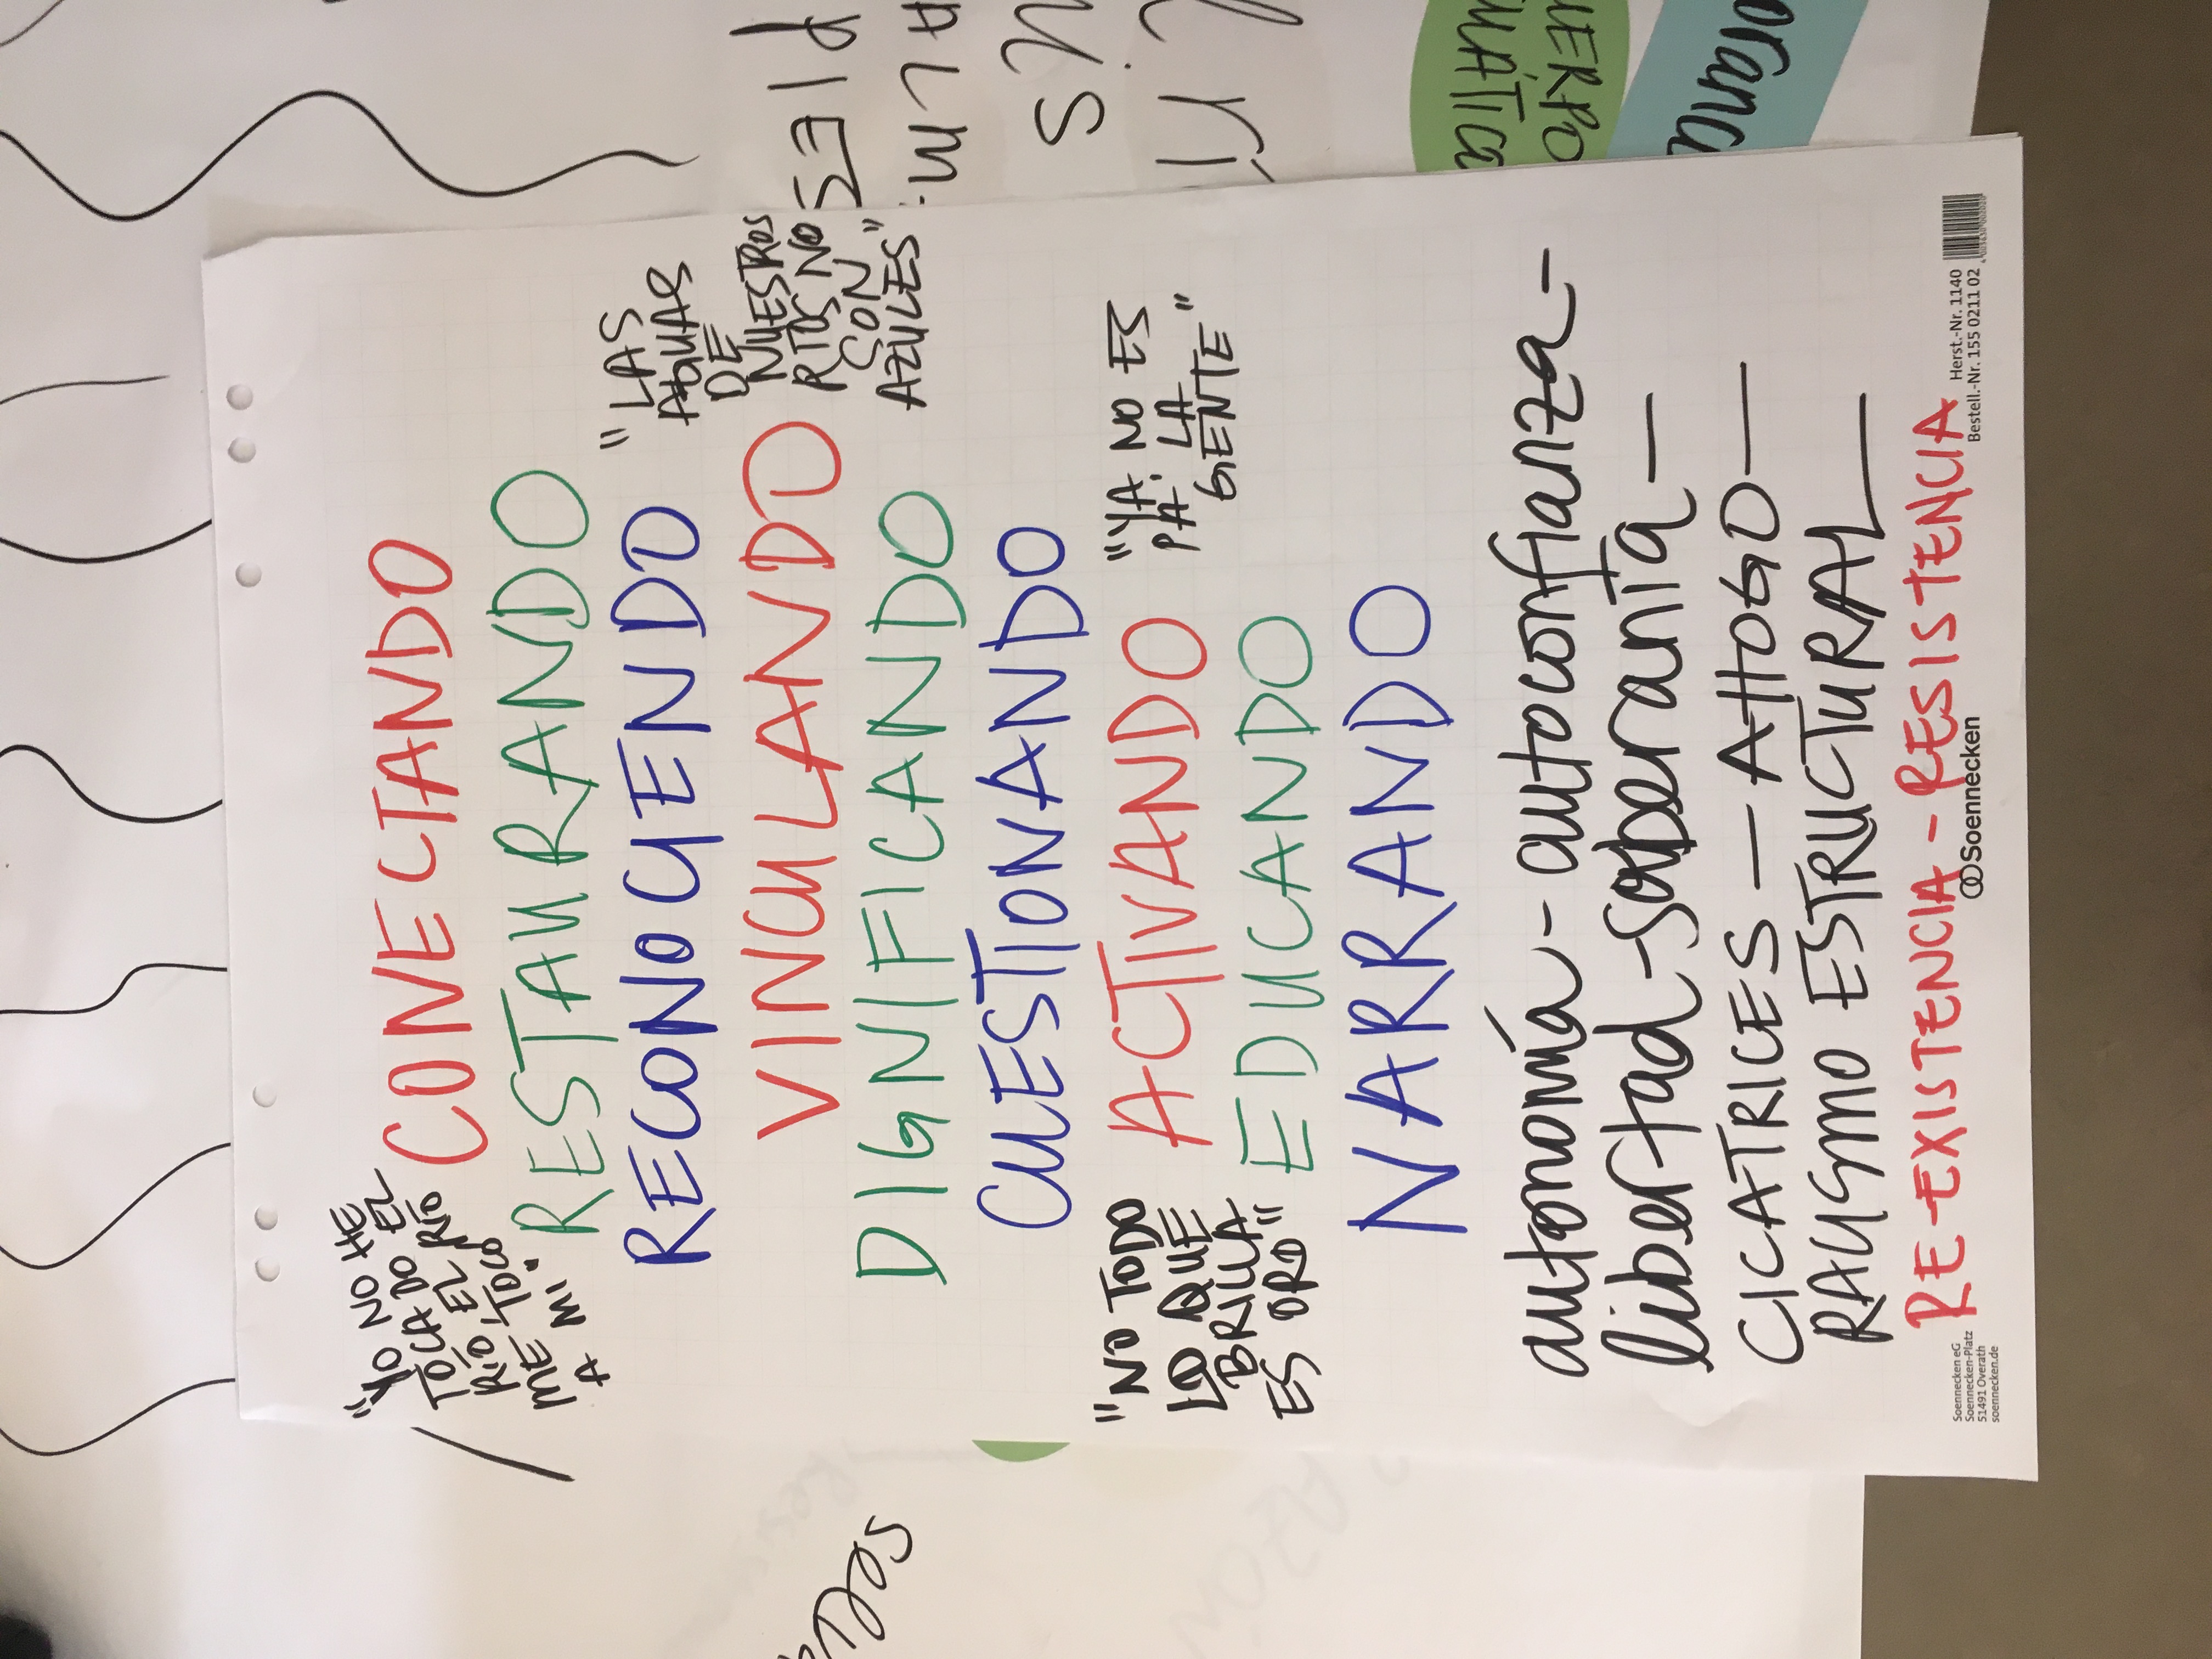 "YO NO HE
TOCADO EL
RÍO, EL RÍO
ME TOCO
A MI"
CONECTANDO
RESTAURANDO
RECONOCIENDO
"LAS
AGUAS
DE
NUESTROS
RIOS NO
SON
AZULES"
VINCULANDO
DIGNIFICANDO
CUESTIONANDO
"NO TODO
LO QUE
BRILLA
ES ORO"
ACTIVANDO
"YA NO ES
PA' LA
GENTE"
EDUCANDO
NARRANDO
autonomía - autoconfianza -
libertad - soberanía -
CICATRICES - AHOGO -
RACISMO ESTRUCTURAL -
RE-EXISTENCIA - RESISTENCIA
Soennecken eG
Soennecken-Platz
51491 Overath
soennecken.de
Soennecken
Herst.-Nr. 1140
Bestell.-Nr. 155 0211 02